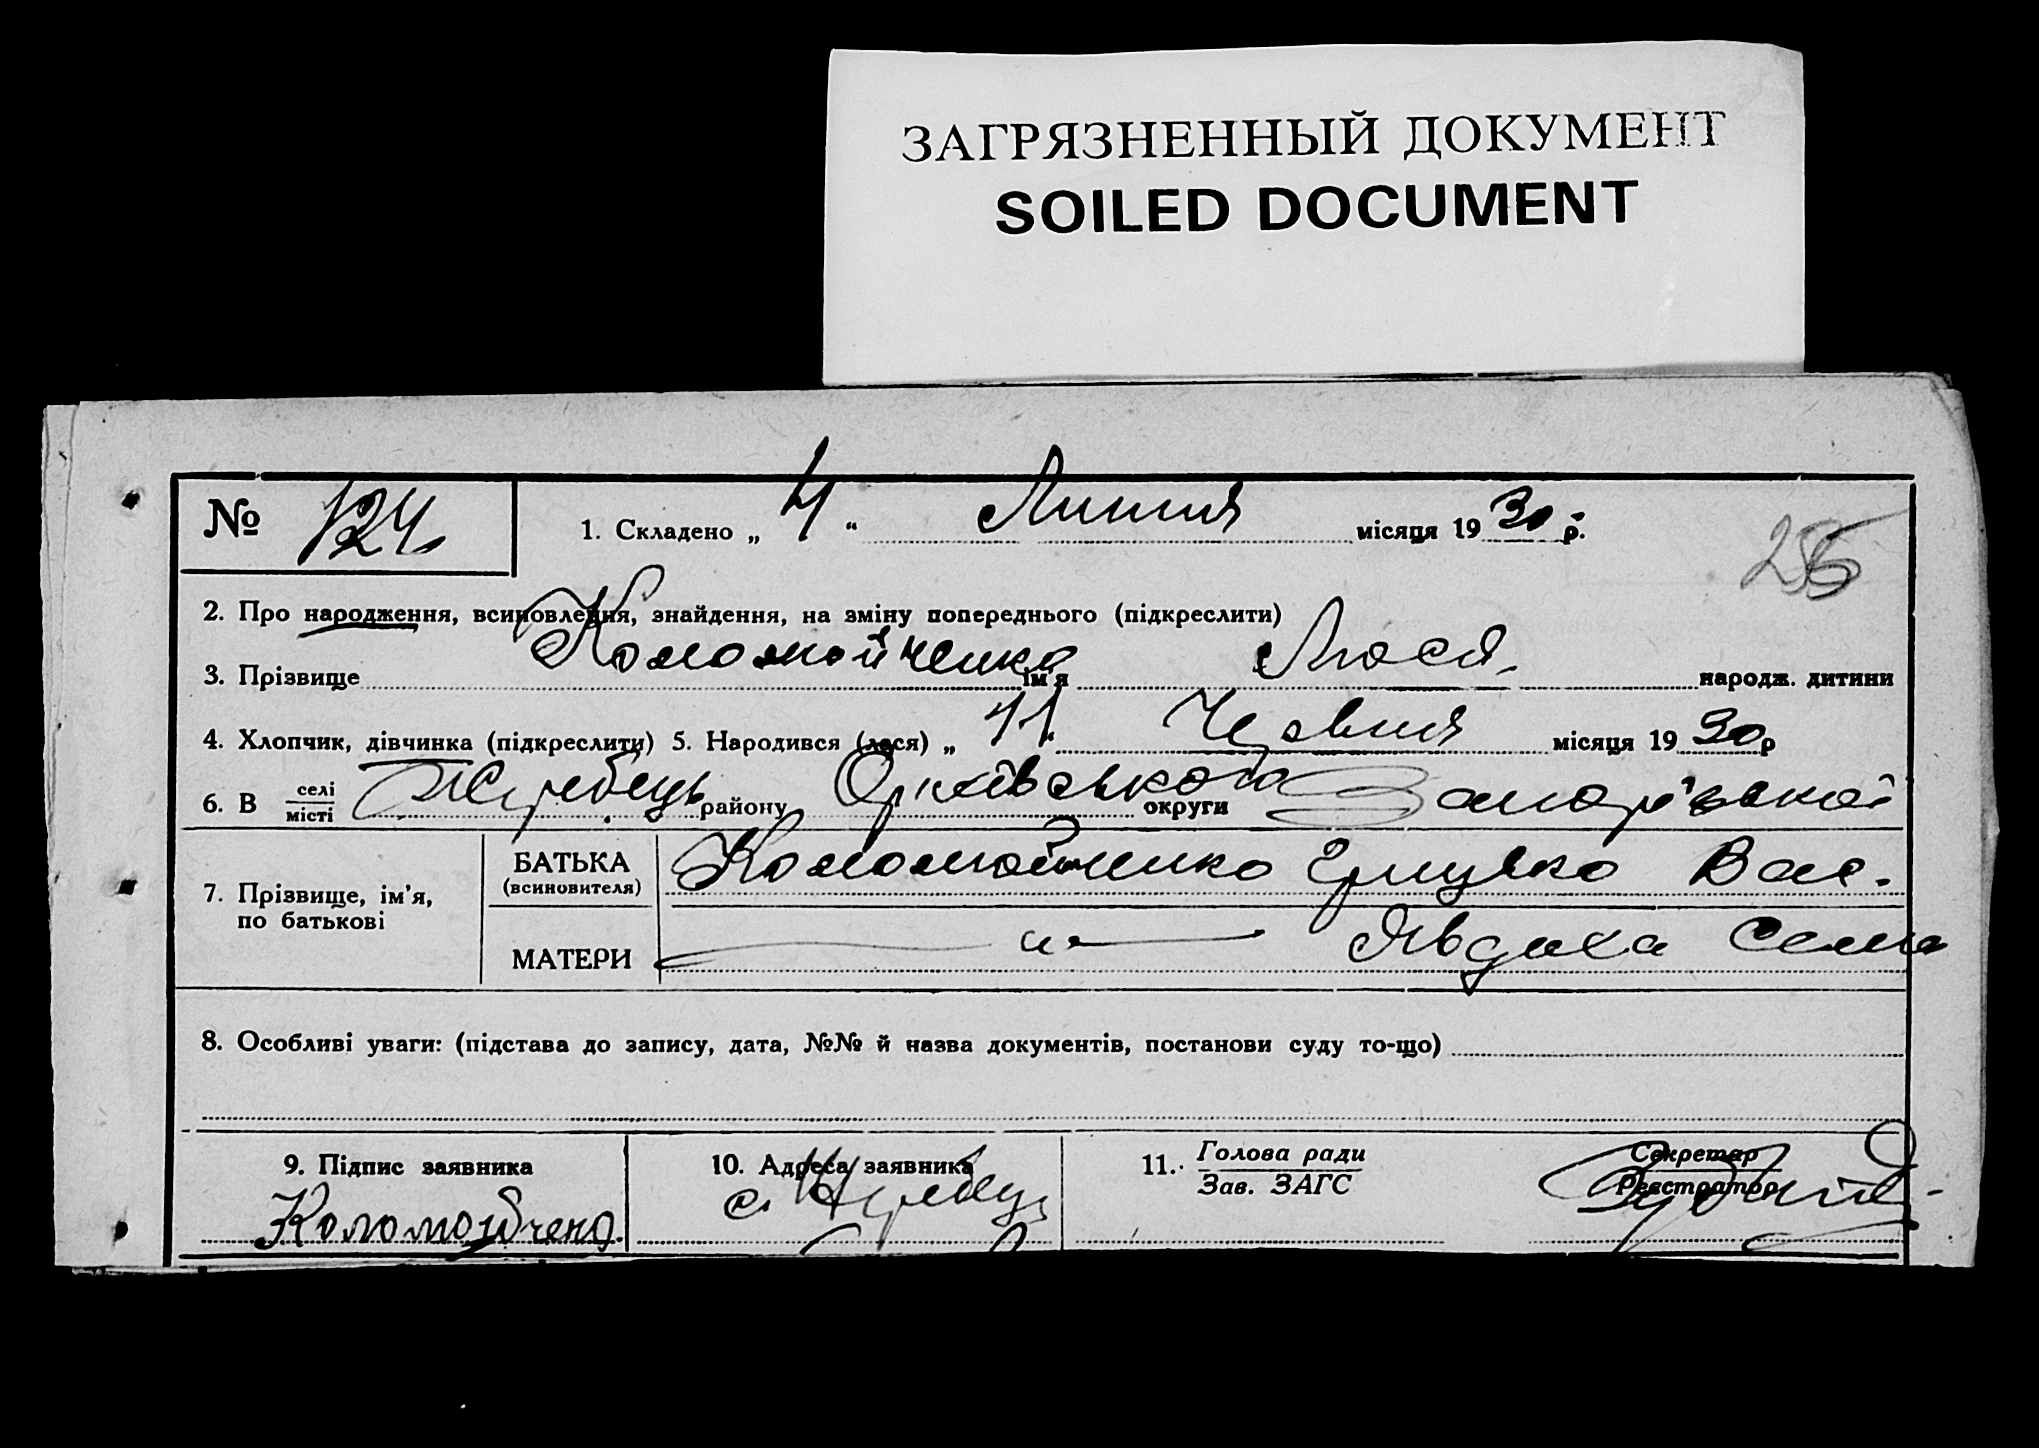 ЗАГРЯЗНЕННЫЙ ДОКУМЕНТ
SOILED DOCUMENT
№ 124
1. Складено „ 4 “ Липня місяця 1930 р.
2. Про народження, всиновлення, знайдення, на зміну попереднього (підкреслити)
3. Прізвище Коломойченко ім'я Люся народж. дитини
4. Хлопчик, дівчинка (підкреслити) 5. Народився (лася) „ 11 Червня місяця 1930 р
6. В селі місті Жеребець району Оріхівського округи Запорізької
7. Прізвище, ім'я, по батькові
БАТЬКА (всиновителя) Коломойченко Грицько Вас.
МАТЕРИ — " — Явдоха Семе
8. Особливі уваги: (підстава до запису, дата, №№ й назва документів, постанови суду то-що)
9. Підпис заявника
Коломойчено
10. Адреса заявника
с. Жеребець
11. Голова ради
Зав. ЗАГС
Секретар
Реєстратор